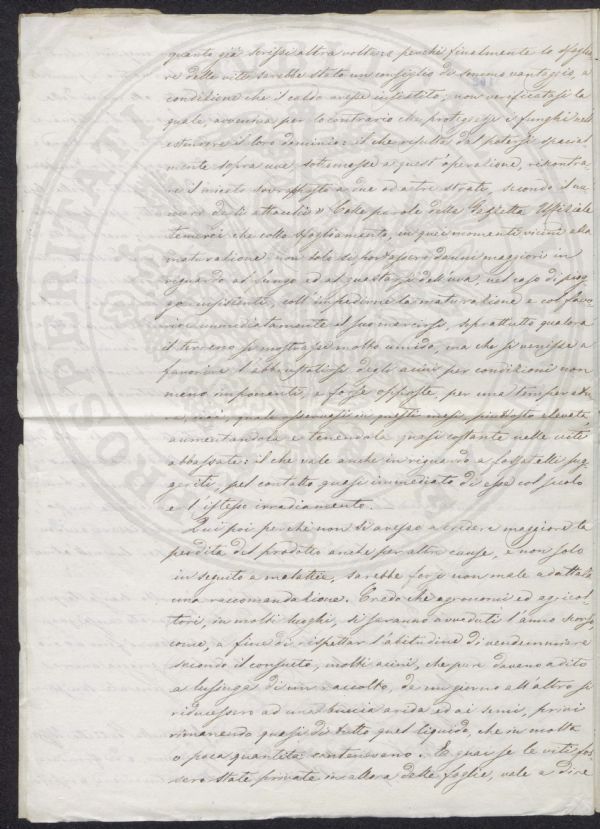 quanto già scrissi altra volta: e perchè finalmente lo sfoglia-
re delle viti sarebbe stato un consiglio di sommo vantaggio, a
condizione che il caldo avesse insistito; non verificatasi la
quale, avvenne per lo contrario che protegesse i funghi nell'
estendere il loro dominio: il che risulta dal potersi special-
mente sopra uve sottomesse a quest'operazione, riscontra-
re il micelio sovrapposto a due ed altre strati, secondo il nu-
mero degli attacchi» Colle parole della Gazzetta Uffiziale
temerei che collo sfogliamento, in quei momenti vicini alla
maturazione non solo si portassero danni maggiori in
riguardo al fungo ed al guastarsi dell'uva, nel caso di piog-
gia insistente, coll'impedirne la maturazione e col favo-
rire immediatamente il suo marcirsi, soprattutto qualora
il terreno si mostrasse molto umido, ma che si venisse a
favorire l'abbrustolirsi degli acini per condizioni non
meno imponenti, e forse opposte, per una temperatu-
ra, cioè, quale osservasi in questi mesi, piuttosto elevata,
aumentandola e tenendola quasi costante nelle viti
abbassate: il che vale anche in riguardo a fossatelli sug-
geriti, pel contatto quasi immediato di esse col suolo
e l'istesso irradiamento.
Qui poi perchè non si avesse a credere maggiore la
perdita del prodotto anche per altre cause, e non solo
in seguito a malattie, sarebbe forse non male adattata
una raccomandazione. Credo che agronomi ed agricol-
tori, in molti luoghi, si saranno avveduti l'anno scorso,
come, a fine di rispettar l'abitudine di vendemmiare
secondo il consueto, molti acini, che pure davano adito
a lusinga di un raccolto, da un giorno all'altro si
riducessero ad una buccia arida ed ai semi, privi
rimanendo quasi di tutto quel liquido, che in molta
o poca quantità contenevano. E guai se le viti fos-
sero state private in allora delle foglie, vale a dire